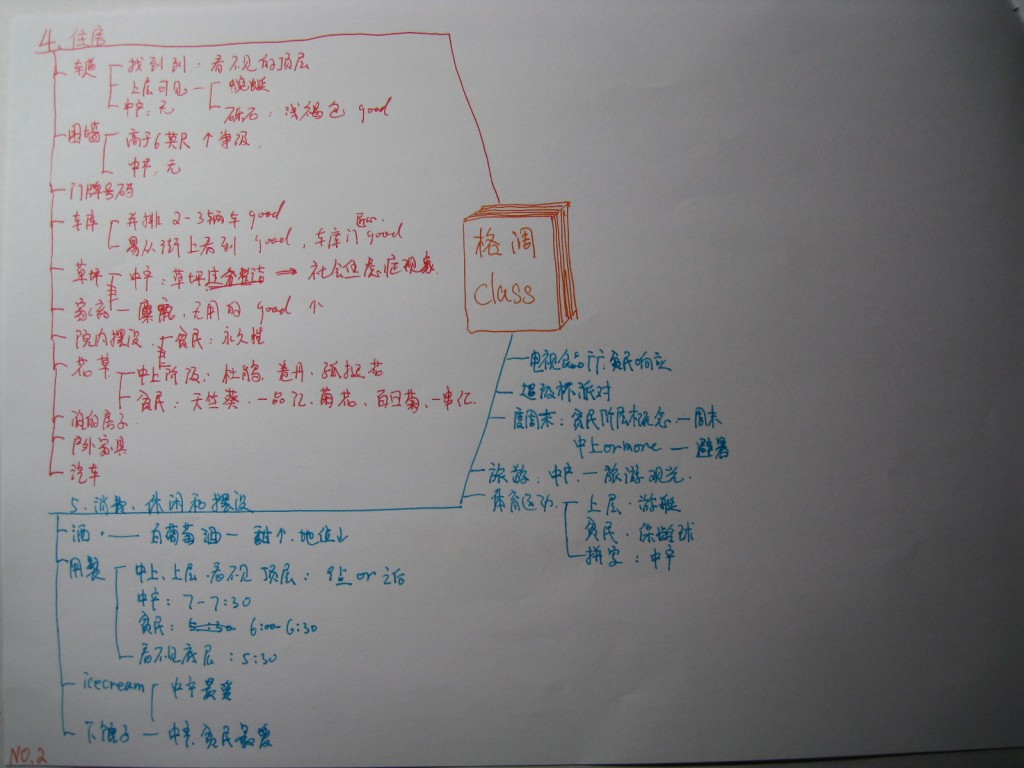 4. 住房
车道 找到到：看不见的顶层
上层可见 — 蜿蜒
中产：无 砾石：浅褐色 good
围墙 高于6英尺 个等级
中产，无
门牌号码
车库 并排 2-3辆车 good
易从街上看到 good，车库门 good
草坪 中产：草坪过分整洁 ⇒ 社会焦虑症现象
家畜 — 麋鹿，无用的 good 个
院内摆设 贫民：永久性
花草 中上阶级：杜鹃
贫民：天竺葵、一品红、菊花、百日菊、一串红
房子
户外家具
汽车
格调
class
电视 贫民响应
超级杯派对
度周末：贫民阶层概念 — 周末
中上 or more — 避暑
旅游：中产 — 旅游观光
体育运动 上层：游艇
贫民：保龄球
拼字：中产
5. 消费、休闲和摆设
酒 — 白葡萄酒 — 甜个，地位
用餐 中上、上层、看不见顶层： or 之后
中产：7-7:30
贫民：6:00 6:30
看不见底层：5:30
icecream 中产最爱
下馆子 — 中产、贫民最爱
NO.2